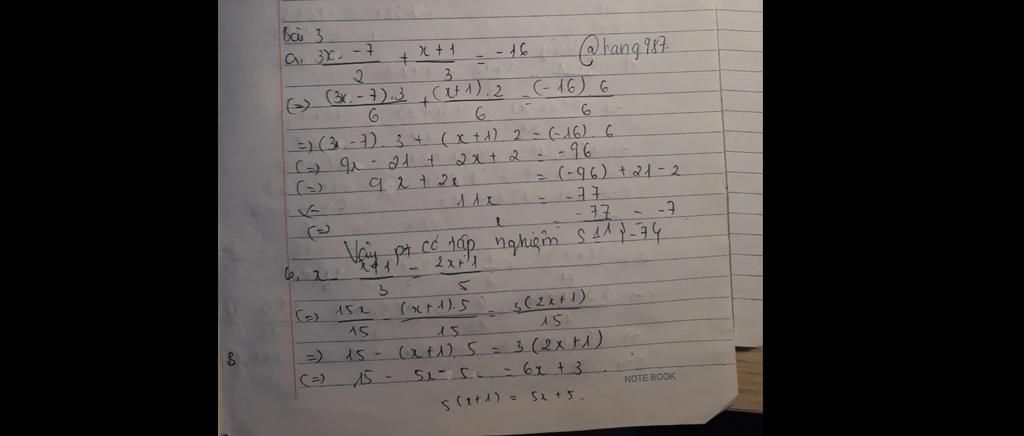 Bài 3
a, 3x - 7 / 2 + x + 1 / 3 = -16 @hang987
(=) (3x - 7).3 / 6 + (x+1).2 / 6 = (-16).6 / 6
=) (3x - 7).3 + (x+1)2 = (-16).6
(=) 9x - 21 + 2x + 2 = -96
(=) 9x + 2x = (-96) + 21 - 2
11x = -77
(=) x = -77 / 11 = -7
Vậy pt có tập nghiệm S
b, x - x+1 / 3 = 2x+1 / 5
(=) 15x / 15 - (x+1).5 / 15 = 3(2x+1) / 15
=) 15 - (x+1).5 = 3(2x+1)
(=) 15 - 5x - 5 = 6x + 3
NOTE BOOK
5(x+1) = 5x + 5.